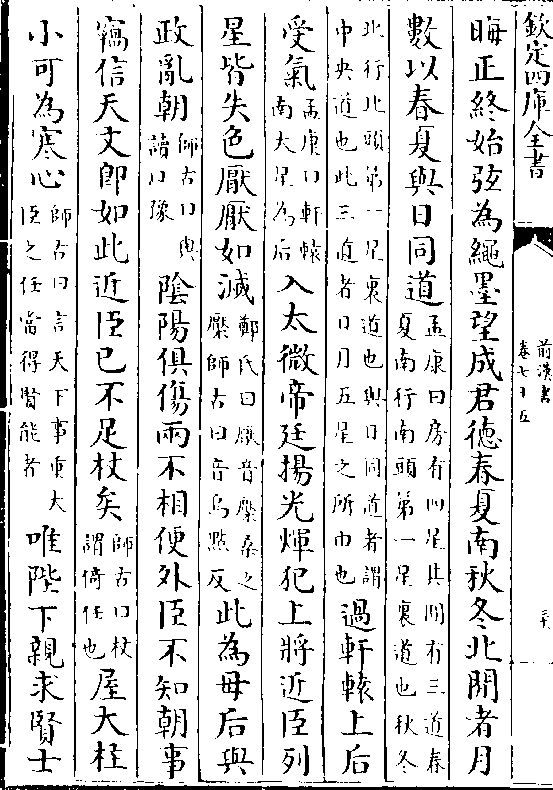 欽定四庫全書
前漢書
卷七十五
晦正終始弦為繩墨望成君德春夏南秋冬北間者月
數以春夏與日同道孟康曰房有四星其間有三道春夏南行南頭第一星裏道也秋冬
北行北頭第一星裏道也與日同道者謂中央道也此三道者日月五星之所由也過軒轅上后
受氣孟康曰軒轅南大星為后入太微帝廷揚光煇犯上將近臣列
星皆失色厭厭如滅鄭氏曰厭音檿桑之檿師古曰音烏點反此為母后與
政亂朝師古曰與讀曰豫陰陽俱傷兩不相便外臣不知朝事
竊信天文即如此近臣已不足杖矣師古曰杖謂倚任也屋大柱
小可為寒心師古曰言天下事重大臣之任當得賢能者唯陛下親求賢士